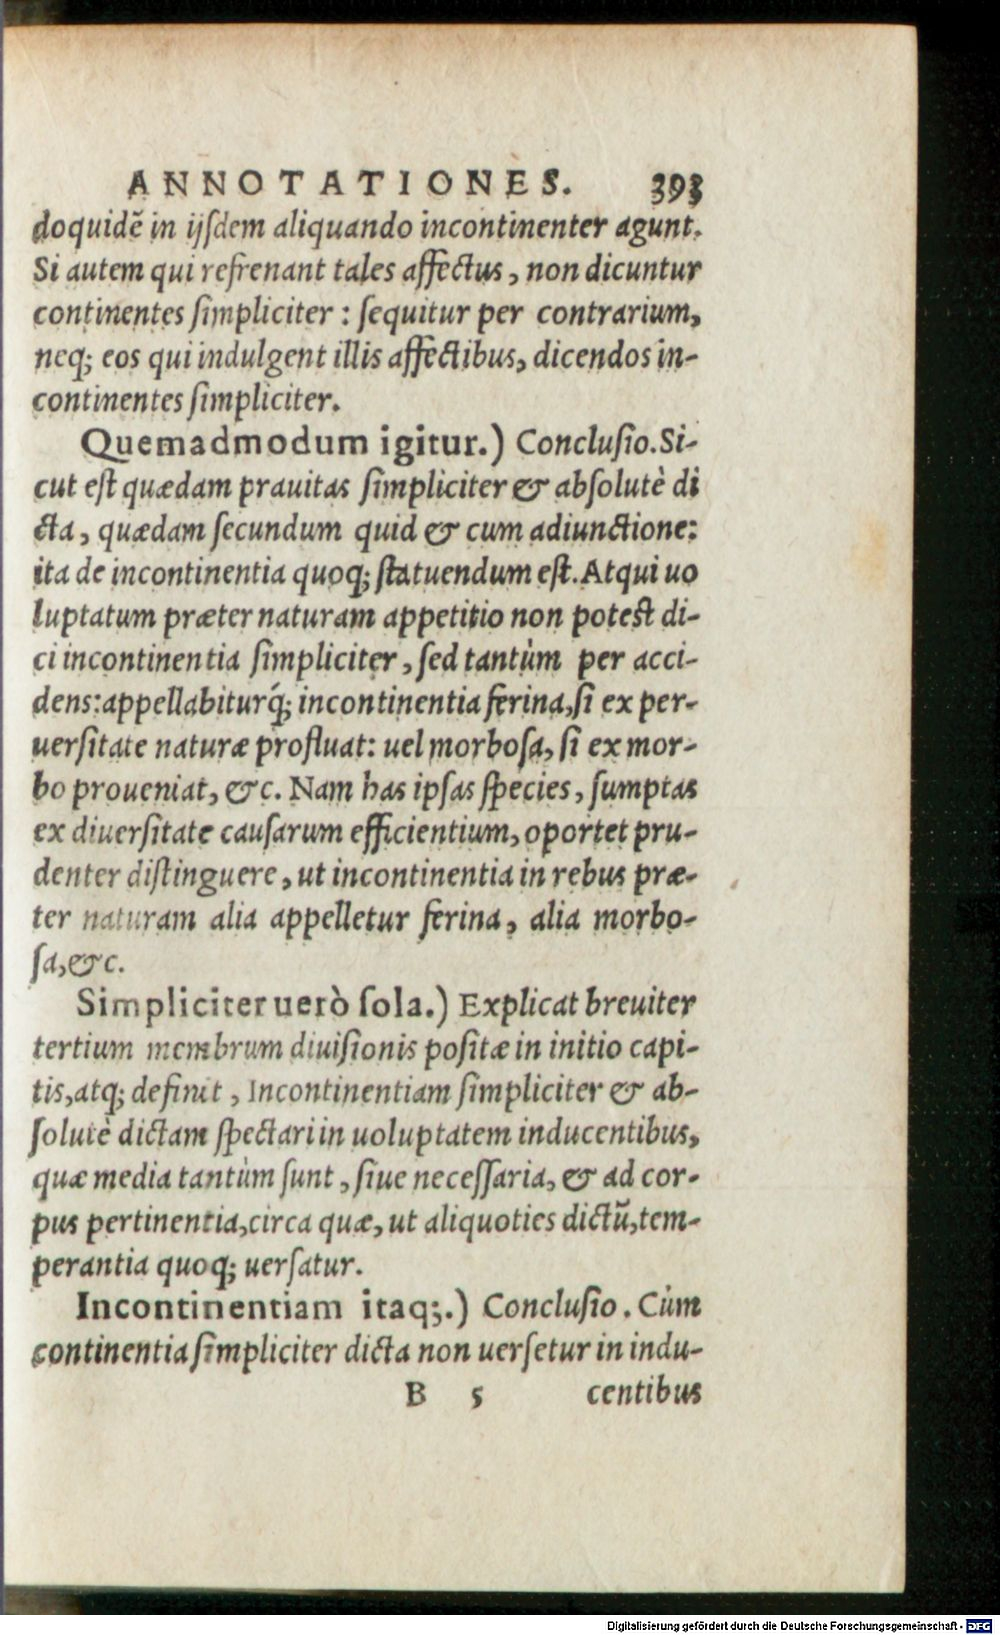 ANNOTATIONES. 393
doquidẽ in ijſdem aliquando incontinenter agunt.
Si autem qui refrenant tales affectus, non dicuntur
continentes ſimpliciter : ſequitur per contrarium,
neq; eos qui indulgent illis affectibus, dicendos in-
continentes ſimpliciter.
Quemadmodum igitur.) Concluſio. Si-
cut eſt quædam prauitas ſimpliciter & abſolutè di
cta, quædam ſecundum quid & cum adiunctione:
ita de incontinentia quoq; ſtatuendum eſt. Atqui uo
luptatum præter naturam appetitio non poteſt di-
ci incontinentia ſimpliciter, ſed tantùm per acci-
dens: appellabiturq́; incontinentia ferina, ſi ex per-
uerſitate naturæ profluat: uel morboſa, ſi ex mor-
bo proueniat, &c. Nam has ipſas ſpecies, ſumptas
ex diuerſitate cauſarum efficientium, oportet pru-
denter diſtinguere, ut incontinentia in rebus præ-
ter naturam alia appelletur ferina, alia morbo-
ſa, &c.
Simpliciter uerò ſola.) Explicat breuiter
tertium membrum diuiſionis poſitæ in initio capi-
tis, atq; definit, Incontinentiam ſimpliciter & ab-
ſolutè dictam ſpectari in uoluptatem inducentibus,
quæ media tantùm ſunt, ſiue neceſſaria, & ad cor-
pus pertinentia, circa quæ, ut aliquoties dictũ, tem-
perantia quoq; uerſatur.
Incontinentiam itaq;.) Concluſio. Cùm
continentia ſimpliciter dicta non uerſetur in indu-
B 5 centibus
Digitalisierung gefördert durch die Deutsche Forschungsgemeinschaft - DFG